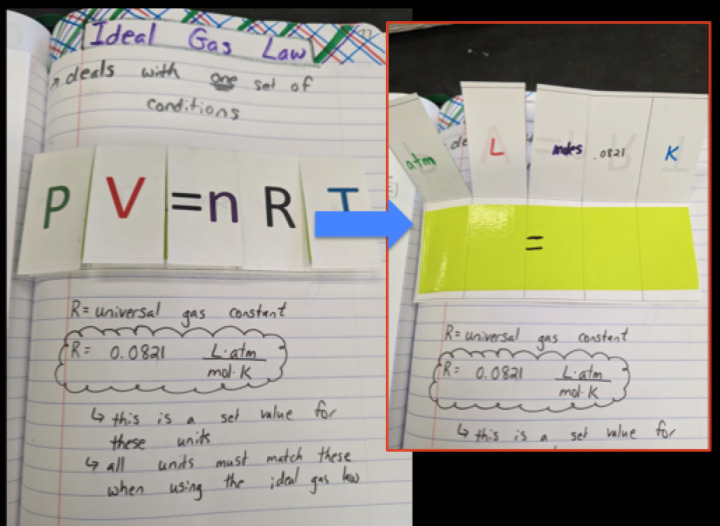 Ideal Gas Law
↗ deals with one set of
conditions
P V =n R T
R= universal gas constant
R= 0.0821 L·atm
mol·K
↳ this is a set value for
these units
↳ all units must match these
when using the ideal gas law
atm L moles .0821 K
=
R= universal gas constant
R= 0.0821 L·atm
mol·K
↳ this is a set value for